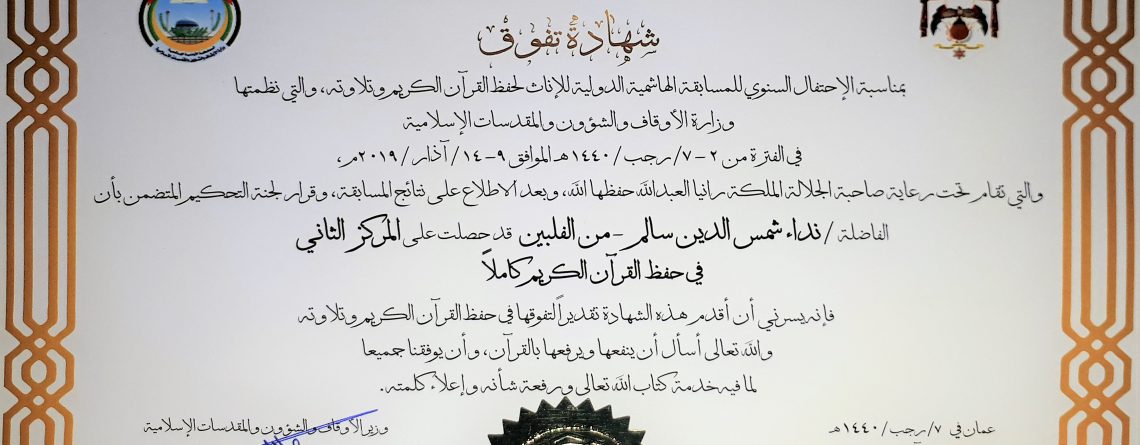 شهادة تفوق
بمناسبة الإحتفال السنوي للمسابقة الهاشمية الدولية للإناث لحفظ القرآن الكريم وتلاوته، والتي نظمتها
وزارة الأوقاف والشؤون والمقدسات الإسلامية
في الفترة من ٢-٧/رجب/١٤٤٠هـ الموافق ٩-١٤/آذار/٢٠١٩م،
والتي تقام تحت رعاية صاحبة الجلالة الملكة رانيا العبدالله حفظها الله، وبعد الاطلاع على نتائج المسابقة، وقرار لجنة التحكيم المتضمن بأن
الفاضلة/نداء شمس الدين سالم - من الفلبين قد حصلت على المركز الثاني
في حفظ القرآن الكريم كاملاً
فإنه يسرني أن أقدم هذه الشهادة تقديراً لتفوقها في حفظ القرآن الكريم وتلاوته
والله تعالى أسأل أن ينفعها ويرفعها بالقرآن، وأن يوفقنا جميعا
لما فيه خدمة كتاب الله تعالى ورفعة شأنه وإعلاء كلمته.
عمان في ٧/رجب/١٤٤٠هـ
وزير الأوقاف والشؤون والمقدسات الإسلامية